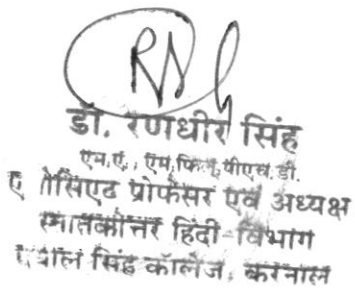 डॉ. रणधीर सिंह
एम.ए., एम.फिल, पीएच.डी.
एसोसिएट प्रोफेसर एवं अध्यक्ष
स्नातकोत्तर हिंदी विभाग
दयाल सिंह कॉलेज, करनाल